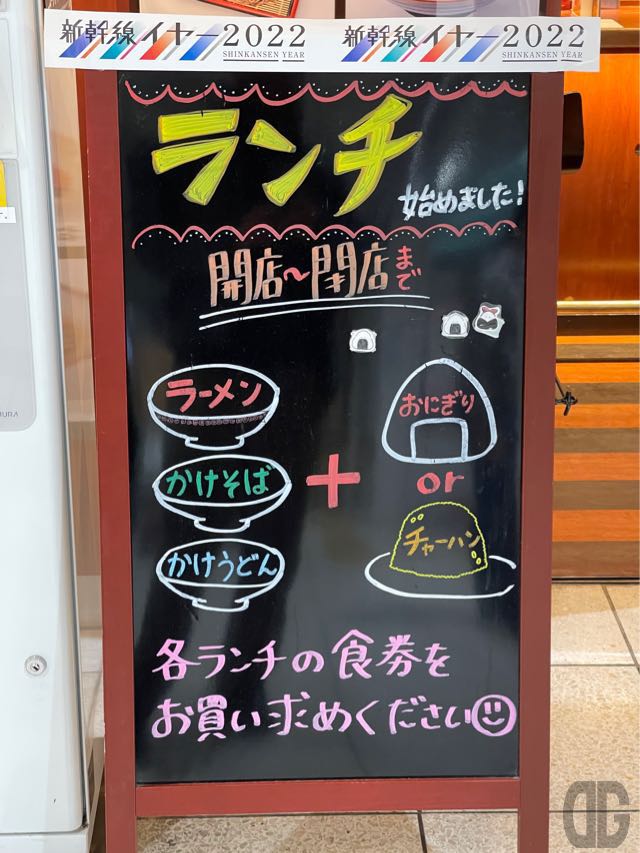 新幹線イヤー2022 新幹線イヤー2022
SHINKANSEN YEAR SHINKANSEN YEAR
ランチ
始めました!
開店~閉店まで
ラーメン
かけそば
かけうどん
+
おにぎり
or
チャーハン
各ランチの食券を
お買い求めください
URA
DG